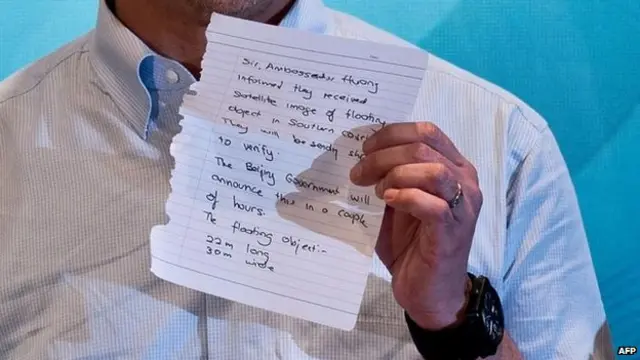 Sir, Ambassador Huang
informed they received
satellite image of floating
object in Southern
They will be sendy
to verify.
The Beijing Government will
announce this in a couple
of hours.
The floating object:-
22 m long
30 m wide
AFP